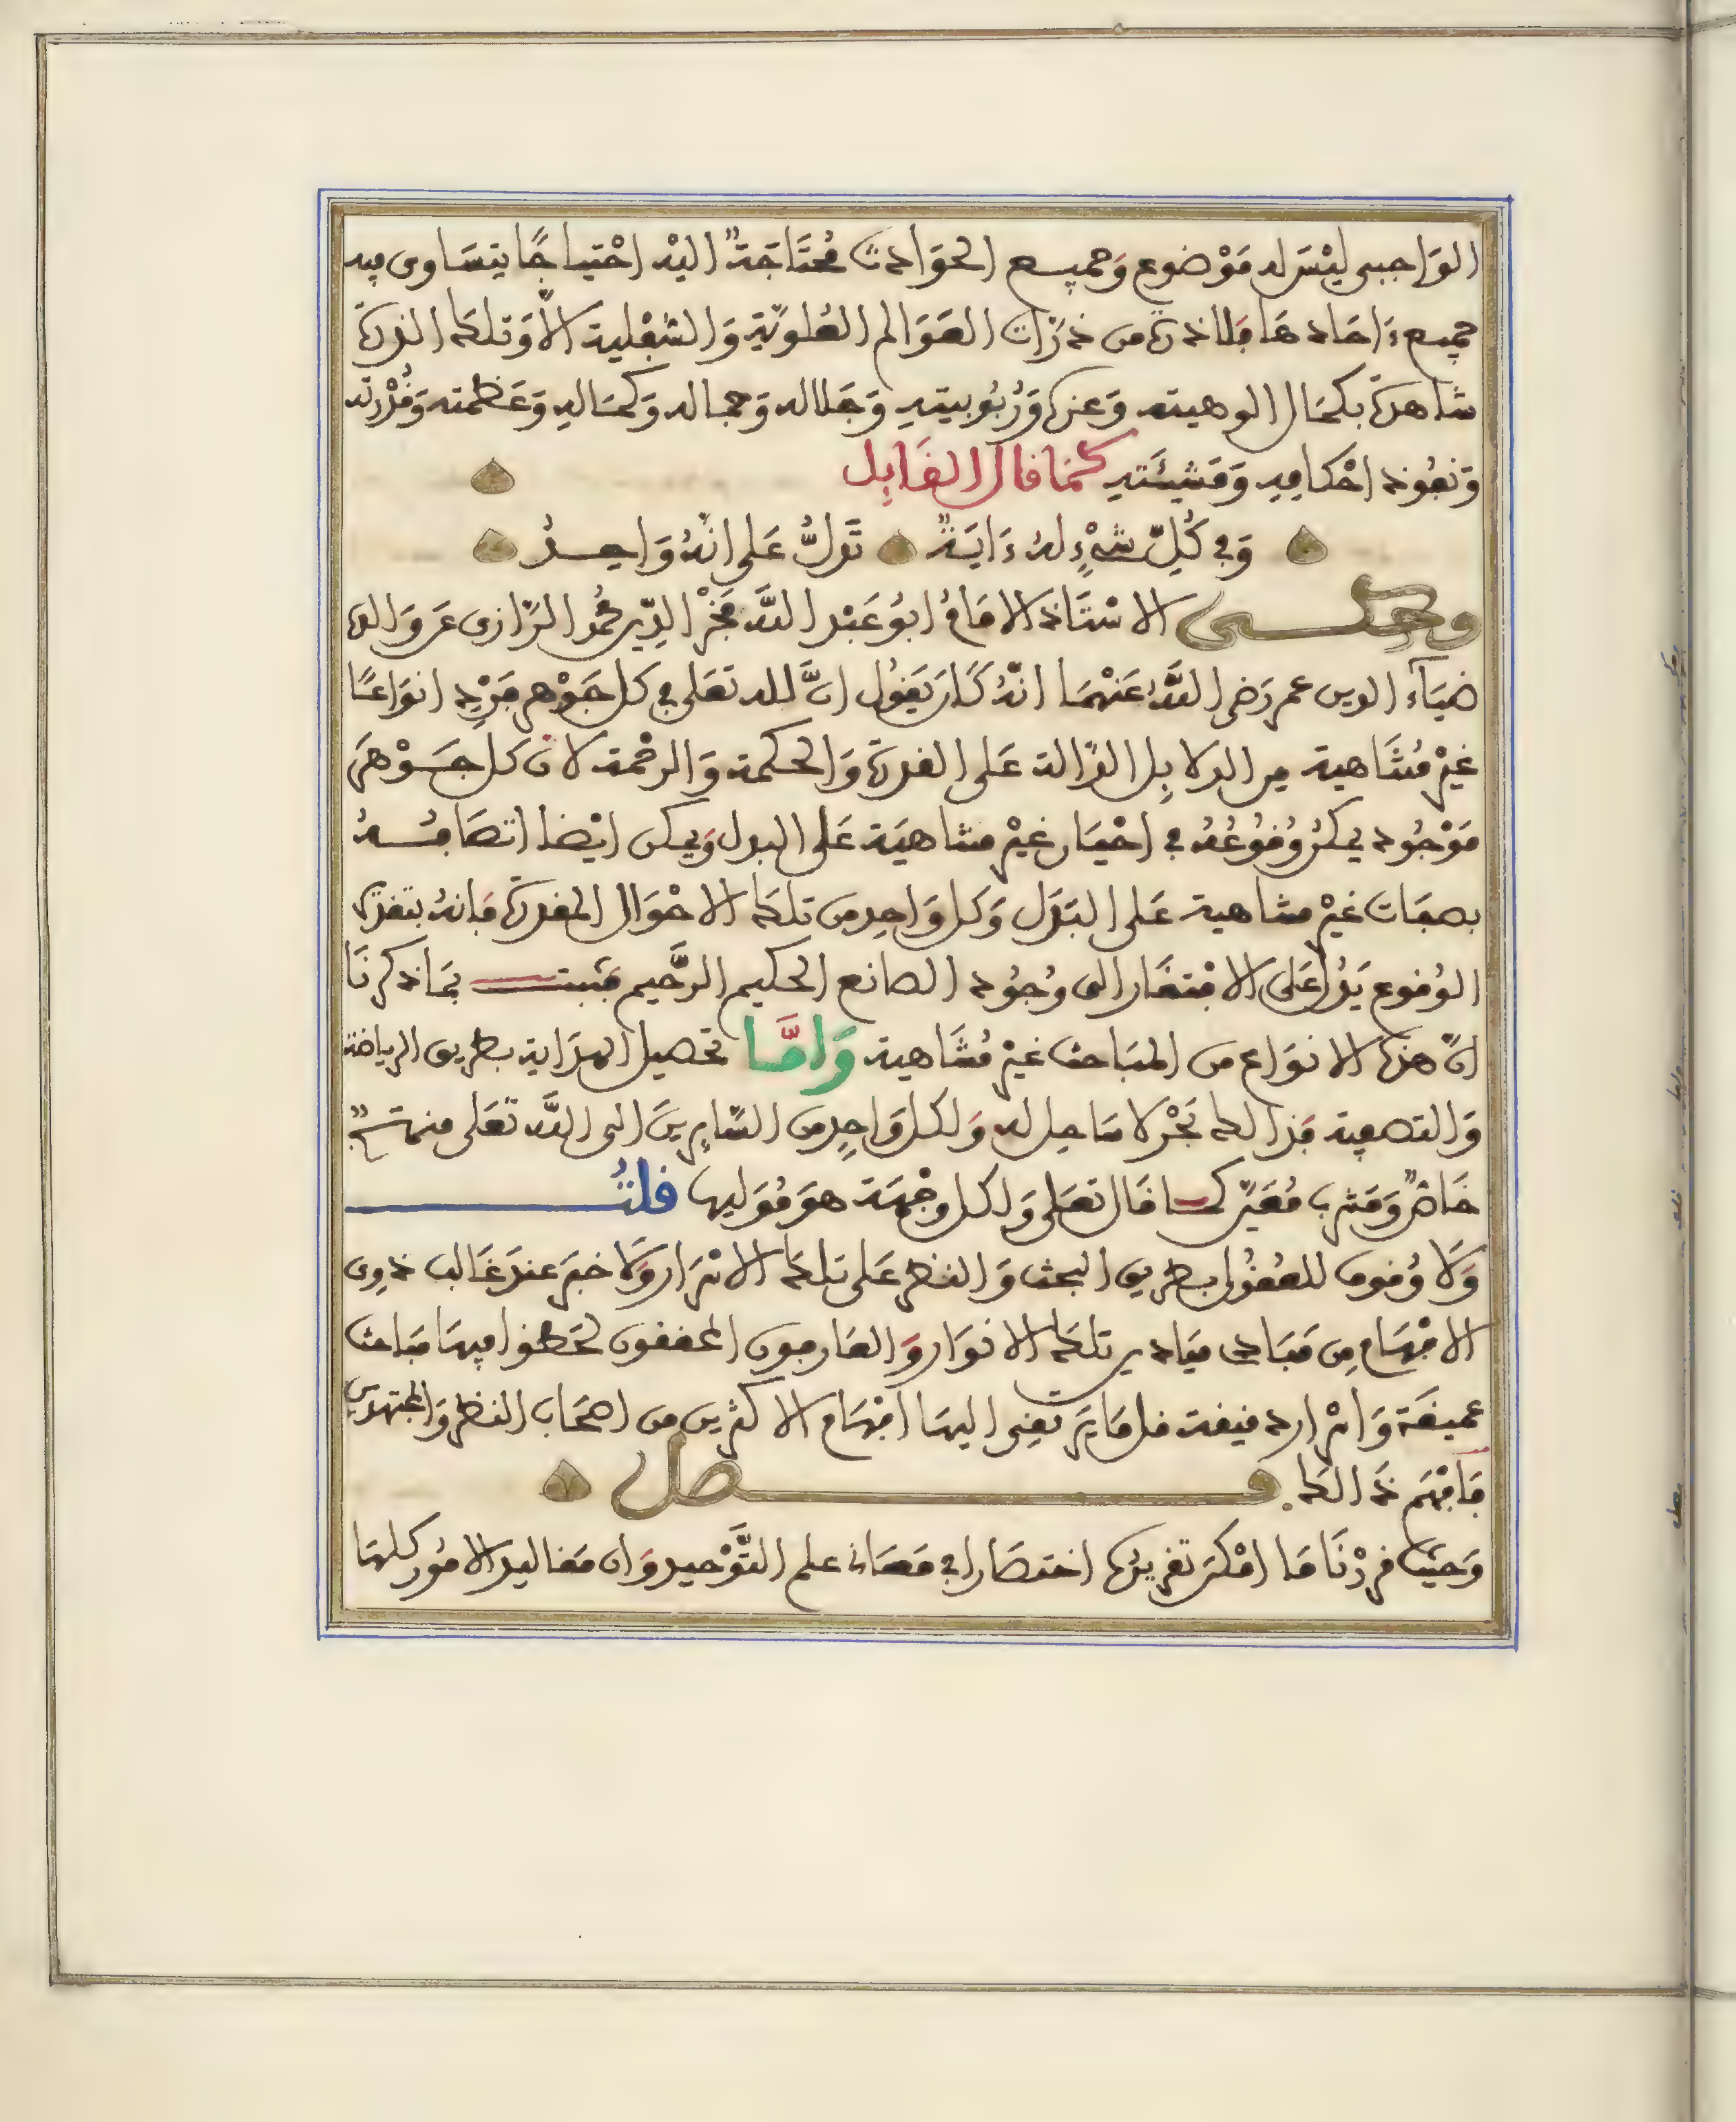 الواجبى ليْسَ له مَوْضوع وَجميع الحوَادث مُحتَاجَةٌ اليْه احْتياجًا يتسَاوى فيه
جميع ءَاحَادهَا فلا ذرة من ذرّات العَوَالم العُلوّية وَالسُفْلية الاّ وَتلك الذرة
شاهدَةٌ بكمَال الوهيته وَعزة وَرُبُوبيتهِ وَجَلاله وَجماله وَكمَالهِ وَعَظمته وَقُدْرته
وَنفُوذ احْكامِهِ وَمَشيئَتهِ كمَا قال القَايِل
وَفى كُلِّ شىْءٍ لهُ ءَايَةٌ تَدلُّ عَلى انّهُ وَاحِدُ
وحكى الاسْتَاذ الامَامُ ابوُ عَبْد اللَّه فخْر الدِّين محُمد الرّازى عَن وَالده
ضيَآء الدين عمر رَضى اللَّهُ عَنْهمَا انّهُ كَانَ يَقوُل انَّ للَّه تعَلى فى كل جَوْهر فَرْدٍ انوَاعًا
غيْر مُتَنَاهية من الدلايِل الدّالة عَلى القدرة وَالحكمة وَالرحْمة لان كل جَوْهَر
مَوْجُود يمكنُ وُقوُعُهُ فى احْيَاز غيْر متناهيَة عَلى البدل وَيمكن ايْضا اتصَافهُ
بصفات غيْر متناهية عَلى البَدَل وَكل وَاحِد من تلك الاحْوَال المقدرة فانهُ بتقدير
الوُقوع يَدُل عَلى الافْتقَار الى وُجوُد الصانع الحكيم الرَّحيم فثبت بمَا ذكرنَا
انّ هذه الانوَاع من المبَاحث غيْر مُتنَاهية وَامَّا تحصيل الهدَاية بطريق الرياضة
وَالتصفية فذالك بَحْر لا سَاحل له وَلكل وَاحِدٍ من السَّايِرينَ الى اللَّه تعَلى منهجٌ
خاصٌ وَمَشرب مُعَيّن كما قال تعَلى وَلكل وجْهَة هوَ مُوَليها قلتُ
وَلا وُقوف للعُقوُل بطريق البحث وَالنظر عَلى تلك الاسْرَار وَلا خبَر عندَ غَالب ذوى
الافْهَام مِن مَبَادى مَيَادين تلك الانوَار وَالعَارفون المحققون لحَظوا فيهَا مبَاحث
عميقَة وَاسْرار دقيقة قل مَا يَرتقِى اليهَا افْهَام الاكثرين من اصحَاب النظر وَالمجتهدين
فَافْهَم ذَالك فصل
وَحيْث قررْنَا مَا امْكنَ تقريرُهُ اختصَارا فى مَعَانى علم التَّوْحيد وَان مَقاليد الامُور كلهَا